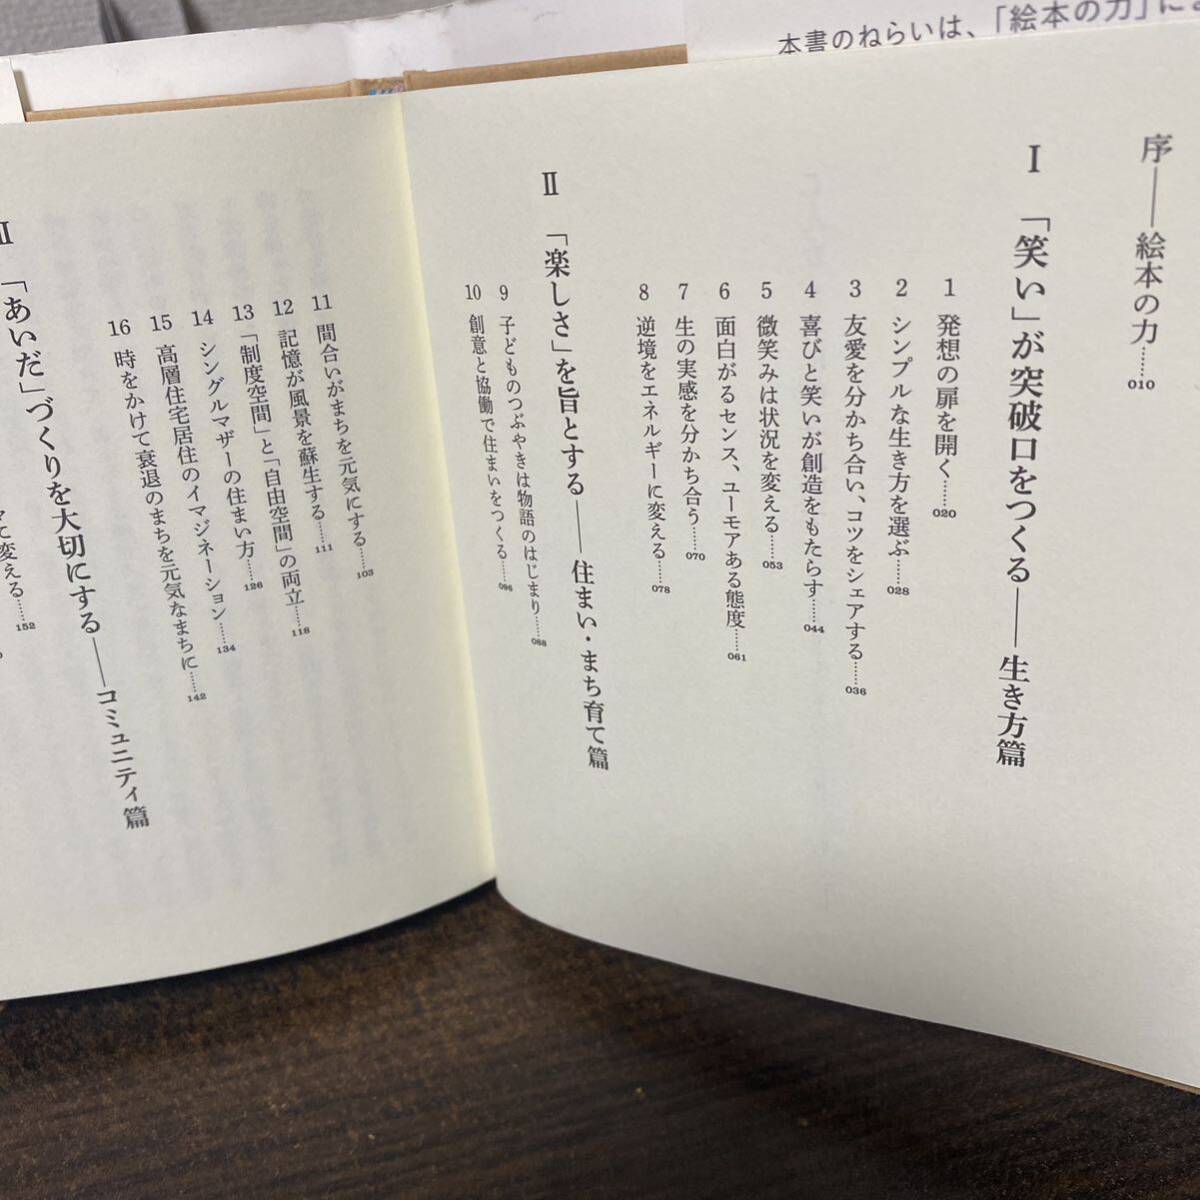 本書のねらいは、「絵本の力」によ
序――絵本の力……010
Ⅰ 「笑い」が突破口をつくる――生き方篇
1 発想の扉を開く……020
2 シンプルな生き方を選ぶ……028
3 友愛を分かち合い、コツをシェアする……036
4 喜びと笑いが創造をもたらす……044
5 微笑みは状況を変える……053
6 面白がるセンス、ユーモアある態度……061
7 生の実感を分かち合う……070
8 逆境をエネルギーに変える……078
Ⅱ 「楽しさ」を旨とする――住まい・まち育て篇
9 子どものつぶやきは物語のはじまり……088
10 創意と協働で住まいをつくる……096
11 間合いがまちを元気にする……103
12 記憶が風景を蘇生する……111
13 「制度空間」と「自由空間」の両立……118
14 シングルマザーの住まい方……126
15 高層住宅居住のイマジネーション……134
16 時をかけて衰退のまちを元気なまちに……142
「あいだ」づくりを大切にする――コミュニティ篇
て変える……152